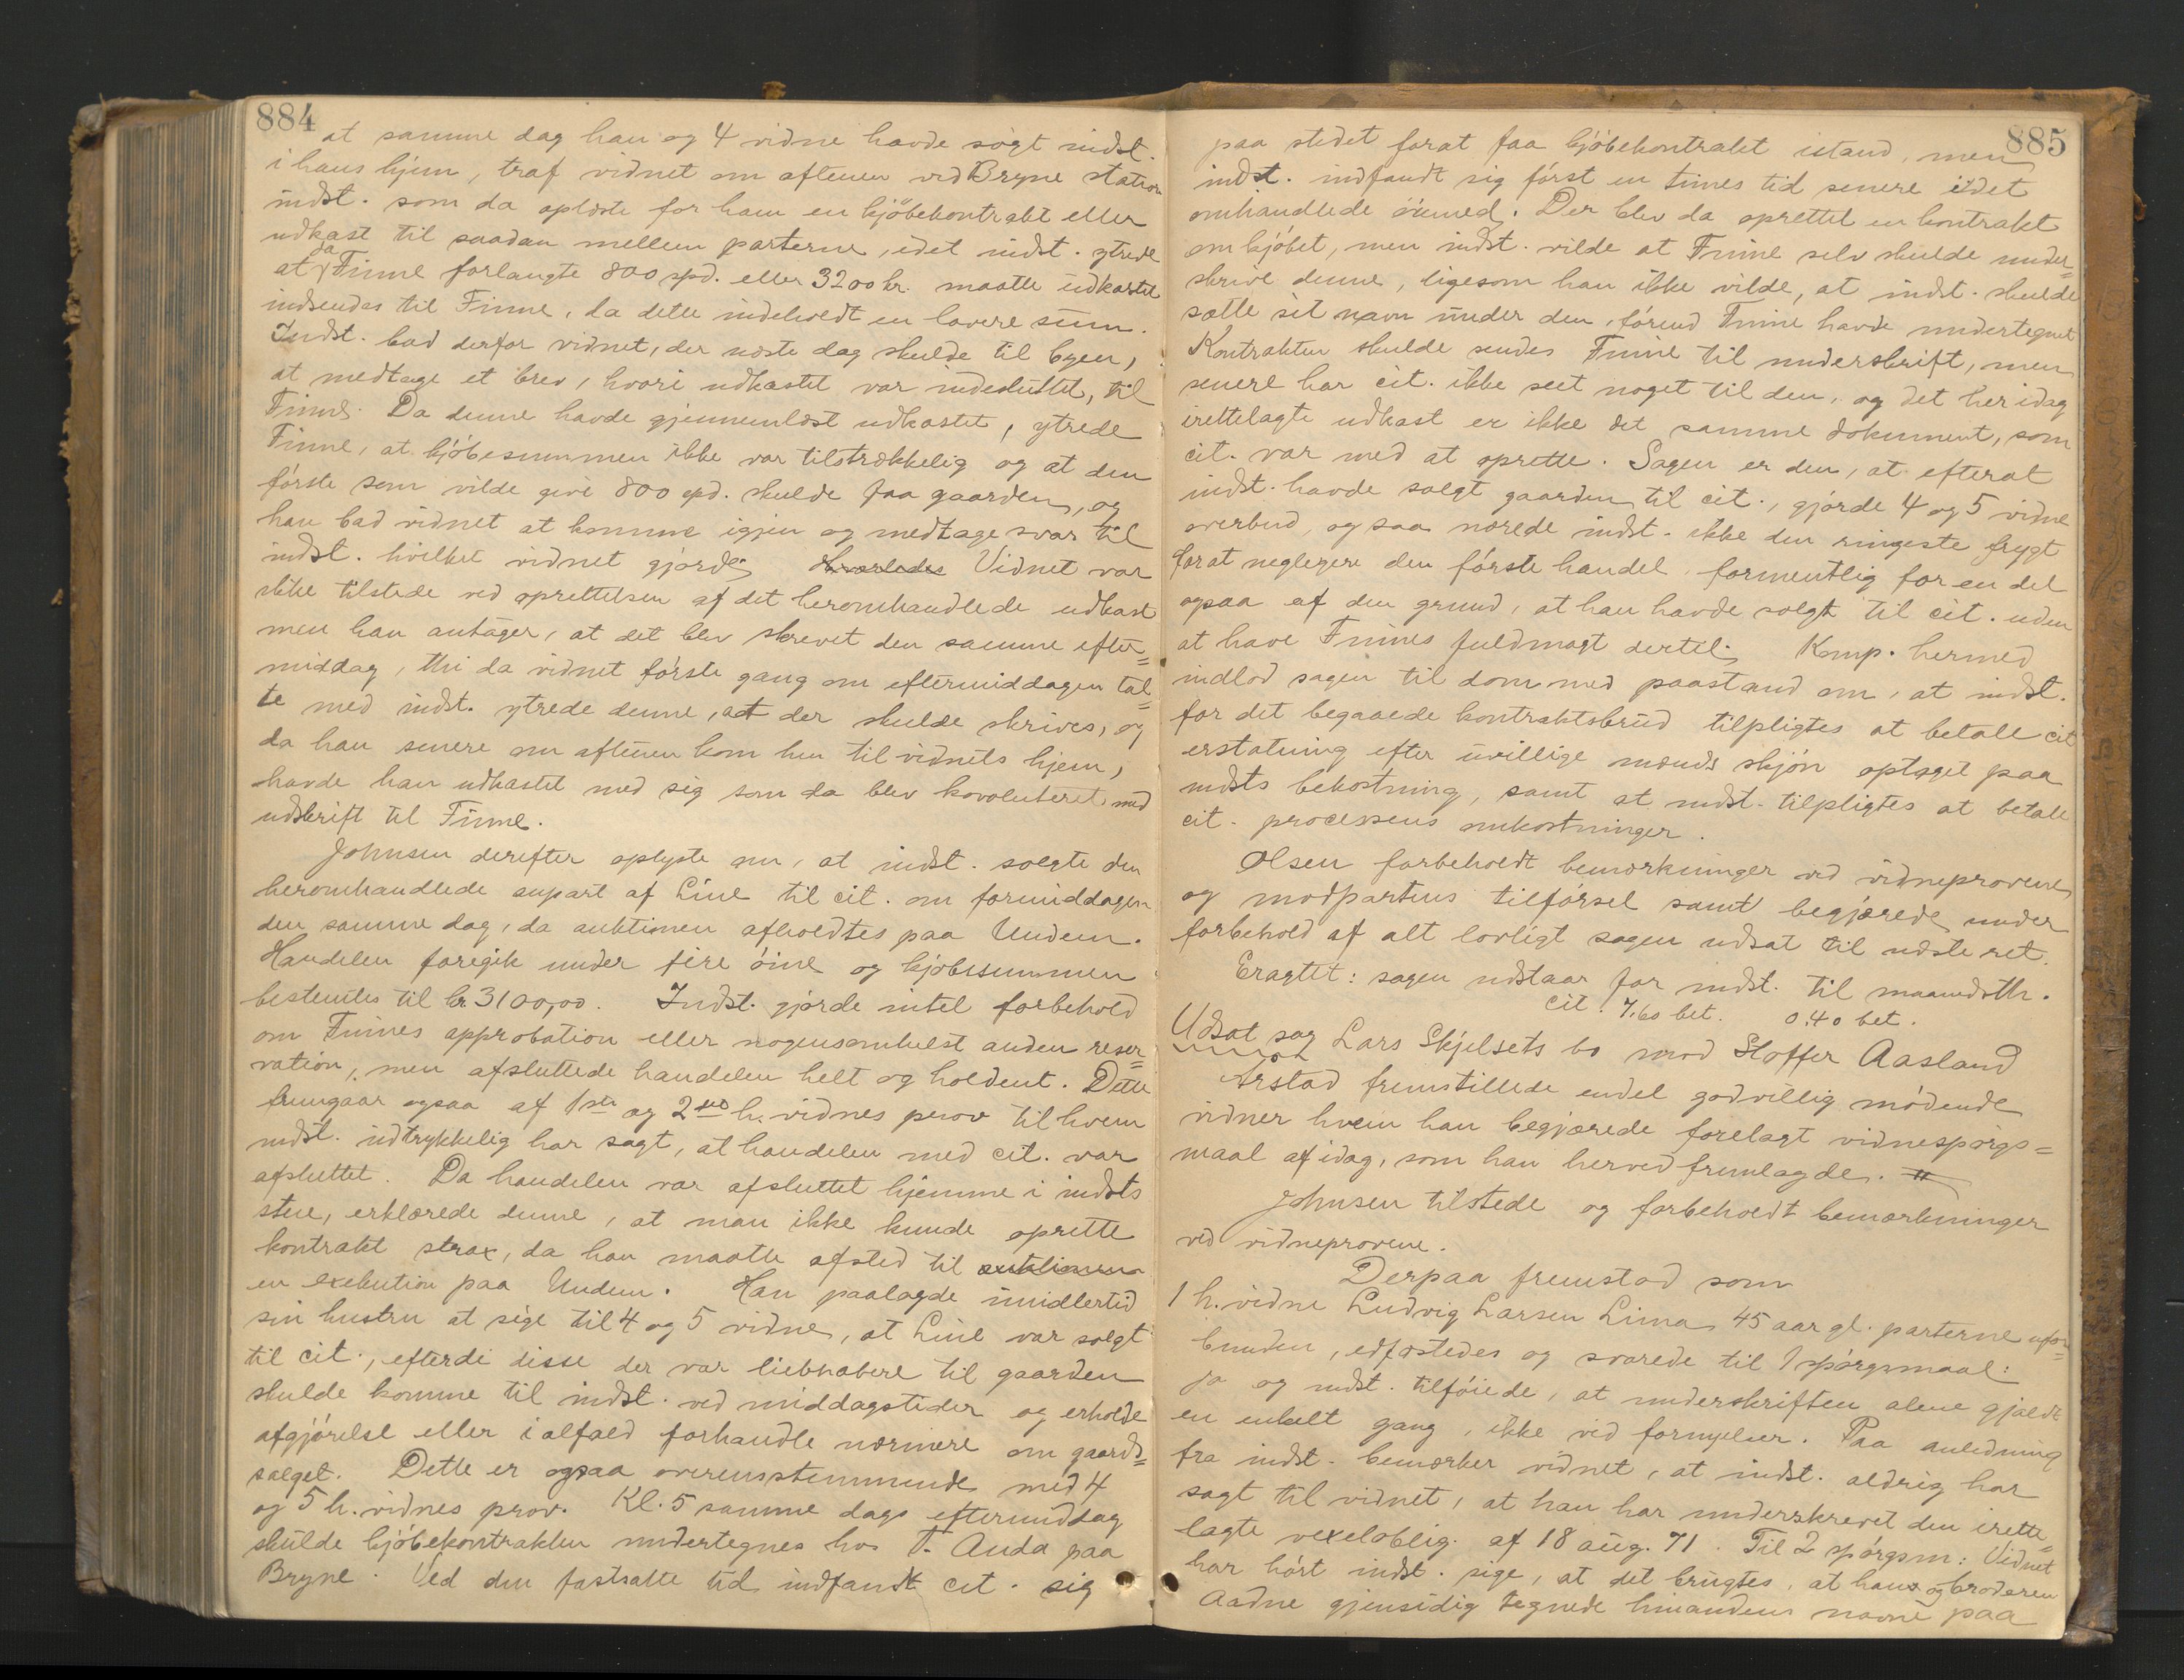 884
at samme dag han og 4 vidne havde søgt indst.
i hans hjem, traf vidnet om aftenen ved Bryne station
indst. som da oplæste for ham en kjöbekontrakt eller
udkast til saadan mellem parterne, idet indst. ytrede
at da Finne forlangte 800 spd. eller 3200 kr. maatte udkastet
indsendes til Finne, da dette indeholdt en lavere sum.
Indst. bad derfor vidnet, der næste dag skulde til byen,
at medtage et brev, hvori udkastet var indesluttet, til
Finne. Da denne havde gjennemlæst udkastet, ytrede
Finne, at kjöbesummen ikke var tilstrækkelig og at den
förste som vilde give 800 spd. skulde faa gaarden, og
han bad vidnet at komme igjen og medtage svar til
indst. hvilket vidnet gjorde; Hvorledes Vidnet var
ikke tilstede ved oprettelsen af det heromhandlede udkast
men han antager, at det blev skrevet den samme efter=
middag, thi da vidnet förste gang om eftermiddagen tal=
te med indst. ytrede denne, at der skulde skrives, og
da han senere om aftenen kom hen til vidnets hjem,
havde han udkastet med sig som da blev konvoluteret med
udskrift til Finne.
Johnsen derefter oplyste nu, at indst. solgte den
heromhandlede anpart af Line til cit. om formiddagen
den samme dag, da auktionen afholdtes paa Undem.
Handelen foregik under fire öine og kjöbesummen
bestemtes til kr 3100,00. Indst. gjorde intet forbehold
om Finnes approbation eller nogensomhelst anden reser=
vation, men afsluttede handelen helt og holdent. Dette
fremgaar ogsaa af 1ste og 2det h. vidnes prov til hvem
indst. udtrykkelig har sagt, at handelen med cit. var
afsluttet. Da handelen var afsluttet hjemme i indsts
stue, erklærede denne, at man ikke kunde oprette
kontrakt strax, da han maatte afsted til auktionen
en exekution paa Undem. Han paalagde imidlertid
sin hustru at sige til 4 og 5 vidne, at Line var solgt
til cit., efterdi disse der var liebhabere til gaarden
skulde komme til indst. ved middagstider og erholde
afgjörelse eller ialfald forhandle nærmere om gaards=
salget. Dette er ogsaa overensstemmende med 4
og 5 h. vidnes prov. Kl. 5 samme dags eftermiddag
skulde kjöbekontrakten undertegnes hos T. Anda paa
Bryne. Ved den fastsatte tid indfandt cit. sig
885
paa stedet forat faa kjöbekontrakt istand, men
indst. indfandt sig först en times tid senere i det
omhandlede öiemed. Der blev da oprettet en kontrakt
om kjöbet, men indst. vilde at Finne selv skulde under=
skrive denne, ligesom han ikke vilde, at indst. skulde
sætte sit navn under den, förend Finne havde undertegnet
Kontrakten skulde sendes Finne til underskrift, men
senere har cit. ikke seet noget til den, og det her idag
irettelagte udkast er ikke det samme dokument, som
cit. var med at oprette. Sagen er den, at efterat
indst. havde solgt gaarden til cit., gjorde 4 og 5 vidne
overbud, og saa nærede indst. ikke den ringeste frygt
forat neglegere den förste handel, formentlig for en del
ogsaa af den grund, at han havde solgt til cit. uden
at have Finnes fuldmagt dertil; Komp. hermed
indlod sagen til dom med paastand om, at indst.
for det begaaede kontraktsbrud tilpligtes at betale cit
erstatning efter uvillige mænds skjön optaget paa
indsts bekostning, samt at indst. tilpligtes at betale
cit. processens omkostninger.
Olsen forbeholdt bemærkninger ved vidneprovene
og modpartens tilförsel samt begjærede under
forbehold af alt lovligt sagen udsat til næste ret.
Eragtet: sagen udstaar for indst. til maanedsth.
cit. 7,60 bet. 0,40 bet.
Udsat sag Lars Skjelsets bo mod Stoffer Aasland
Årstad fremstillede endel godvillig mödende
vidner hvem han begjærede forelagt vidnespörgs=
maal af idag, som han herved fremlagde.
Johnsen tilstede og forbeholdt bemærkninger
ved vidneprovene.
Derpaa fremstod som
1 h. vidne Ludvig Larsen Lima 45 aar gl. parterne ufor=
bunden, edfæstedes og svarede til 1 spörgsmaal:
ja og indst. tilföiede, at underskriften alene gjaldt
en enkelt gang, ikke ved fornyelser. Paa anledning
fra indst. bemærker vidnet, at indst. aldrig har
sagt til vidnet, at han har underskrevet den irette=
lagte vexeloblig. af 18 aug. 71. Til 2 spörgsm: Vidnet
har hört indst. sige, at det brugtes, at han og broderen
Aadne gjensidig tegnede hinandens navne paa